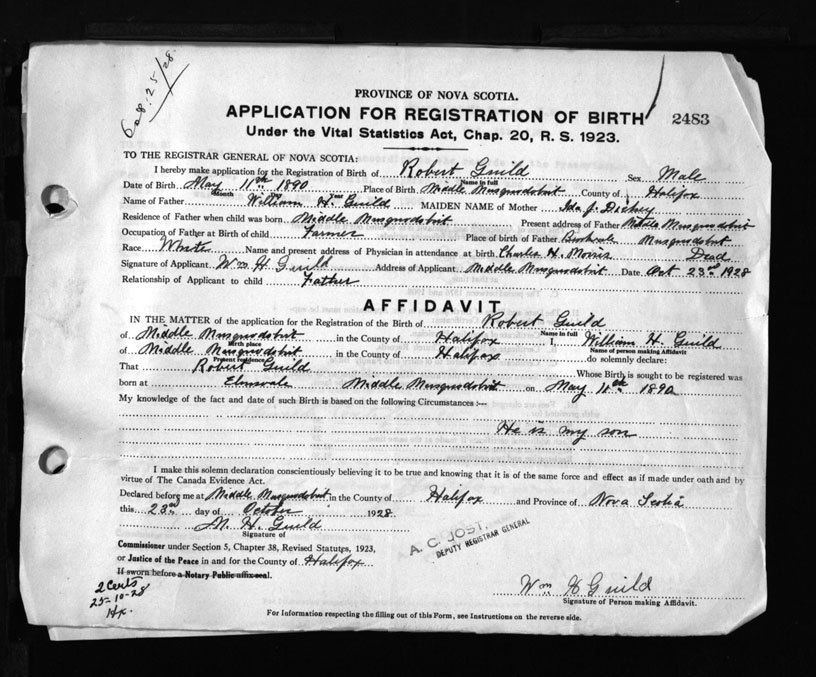 608.25/28.
PROVINCE OF NOVA SCOTIA.
APPLICATION FOR REGISTRATION OF BIRTH 2483
Under the Vital Statistics Act, Chap. 20, R. S. 1923.
TO THE REGISTRAR GENERAL OF NOVA SCOTIA:
I hereby make application for the Registration of Birth of Robert Guild Sex Male
Name in full
Date of Birth May 11th 1890 Place of Birth Middle Musquodobit County of Halifax
Month Day
Name of Father William H. Guild MAIDEN NAME of Mother Ida J. Dickey
Residence of Father when child was born Middle Musquodobit Present address of Father Middle Musquodobit
Occupation of Father at Birth of child Farmer Place of birth of Father Musquodobit
Race White Name and present address of Physician in attendance at birth Charles H. Morris Dead
Signature of Applicant Wm H Guild Address of Applicant Middle Musquodobit Date Oct 23rd 1928
Relationship of Applicant to child Father
AFFIDAVIT
IN THE MATTER of the application for the Registration of the Birth of Robert Guild
Name in full
of Middle Musquodobit in the County of Halifax I, William H. Guild
Birth place
Name of person making Affidavit
of Middle Musquodobit in the County of Halifax do solemnly declare:
Present residence
That Robert Guild Whose Birth is sought to be registered was
born at Elmsvale Middle Musquodobit on May 11th 1890
My knowledge of the fact and date of such Birth is based on the following Circumstances :—
He is my son
I make this solemn declaration conscientiously believing it to be true and knowing that it is of the same force and effect as if made under oath and by
virtue of The Canada Evidence Act.
Declared before me at Middle Musquodobit in the County of Halifax and Province of Nova Scotia
this 23rd day of October 1928
M. H. Guild
Signature of
A. C. JOST,
DEPUTY REGISTRAR GENERAL
Commissioner under Section 5, Chapter 38, Revised Statutes, 1923,
or Justice of the Peace in and for the County of Halifax
If sworn before a Notary Public affix seal.
2 Certs
25-10-28
Hx.
Wm H Guild
Signature of Person making Affidavit.
For Information respecting the filling out of this Form, see Instructions on the reverse side.